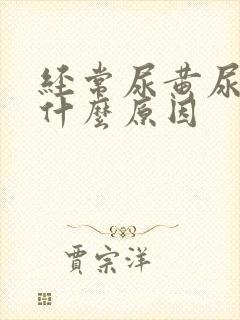 經常尿黃尿
什麼原因
賈宗洋